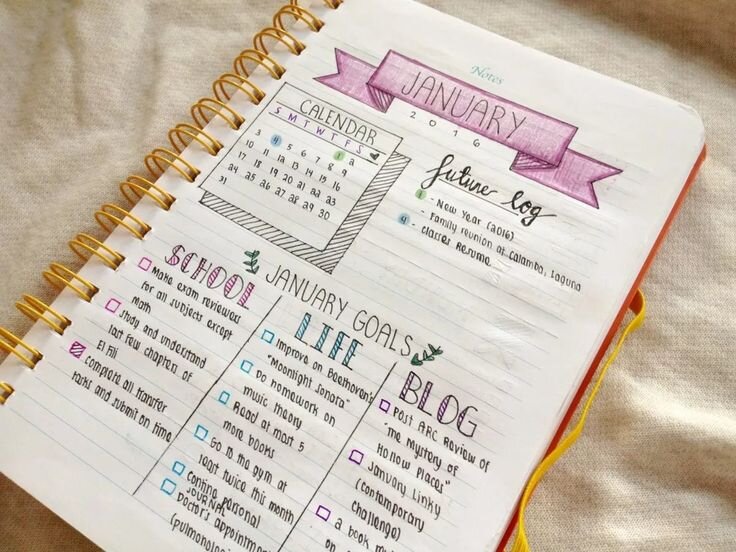 Notes
JANUARY
2016
CALENDAR
S M T W T F S
1 2
3 4 5 6 7 8 9
10 11 12 13 14 15 16
17 18 19 20 21 22 23
24 25 26 27 28 29 30
31
future log
1 - New Year (2016)
- Family reunion at Calamba, Laguna
4 - Classes Resume
JANUARY GOALS
SCHOOL
Make exam reviewers
for all subjects except
math
Study and understand
last few chapters of
El Fili
Complete all transfer
tasks and submit on time
LIFE
Improve on Beethoven's
"Moonlight Sonata"
Do homework on
music theory
Read at most 5
more books
Go to the gym at
least twice this month
Continue personal
JOURNAL
Doctor's appointment
BLOG
Post ARC Review of
"The Mystery of
Hollow Places"
January Linky
(Contemporary
Challenge)
a book